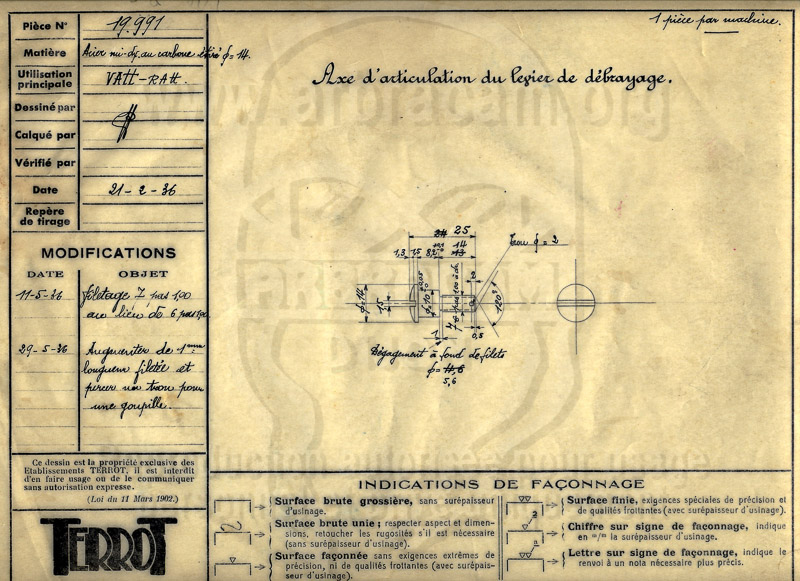 Pièce N° 19.991
Matière Acier mi-dur au carbone étiré ϕ=14.
Utilisation principale VATT-RATT.
Dessiné par
Calqué par
Vérifié par
Date 21-2-36
Repère de tirage
MODIFICATIONS
DATE OBJET
11-5-36 filetage 7 pas 1,00
au lieu de 6 pas 1,00
29-5-36 Augmenter de 1mm
longueur filetée et
percer un trou pour
une goupille.
Ce dessin est la propriété exclusive des
Etablissements TERROT, il est interdit
d'en faire usage ou de le communiquer
sans autorisation expresse.
(Loi du 11 Mars 1902.)
TERROT
1 pièce par machine.
Axe d'articulation du levier de débrayage.
24 25
14
1,3 1,5 8,2 13
Trou ϕ=2
ϕ=14
1,5
120°
1
0,5
Dégagement à fond de filets
ϕ= 4,6
5,6
INDICATIONS DE FAÇONNAGE
Surface brute grossière, sans surépaisseur
d'usinage.
Surface brute unie; respecter aspect et dimen-
sions, retoucher les rugosités s'il est nécessaire
(sans surépaisseur d'usinage).
Surface façonnée sans exigences extrêmes de
précision, ni de qualités frottantes (avec surépais-
seur d'usinage).
Surface finie, exigences spéciales de précision et
de qualités frottantes (avec surépaisseur d'usinage).
2
Chiffre sur signe de façonnage, indique
en m/m la surépaisseur d'usinage.
a
Lettre sur signe de façonnage, indique le
renvoi à un nota nécessaire plus précis.